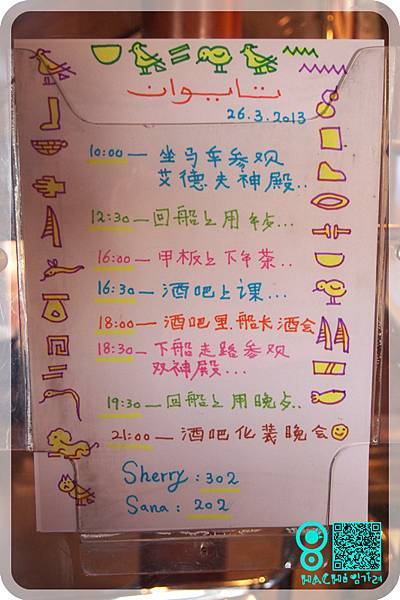 تايوان
26.3.2013
10:00 — 坐马车参观
艾德夫神殿..
12:30 — 回船上用午...
16:00 — 甲板上下午茶..
16:30 — 酒吧上课...
18:00 — 酒吧里.船长酒会
18:30 — 下船走路参观
双神殿...
19:30 — 回船上用晚..
21:00 — 酒吧化装晚会
Sherry : 302
Sana : 202